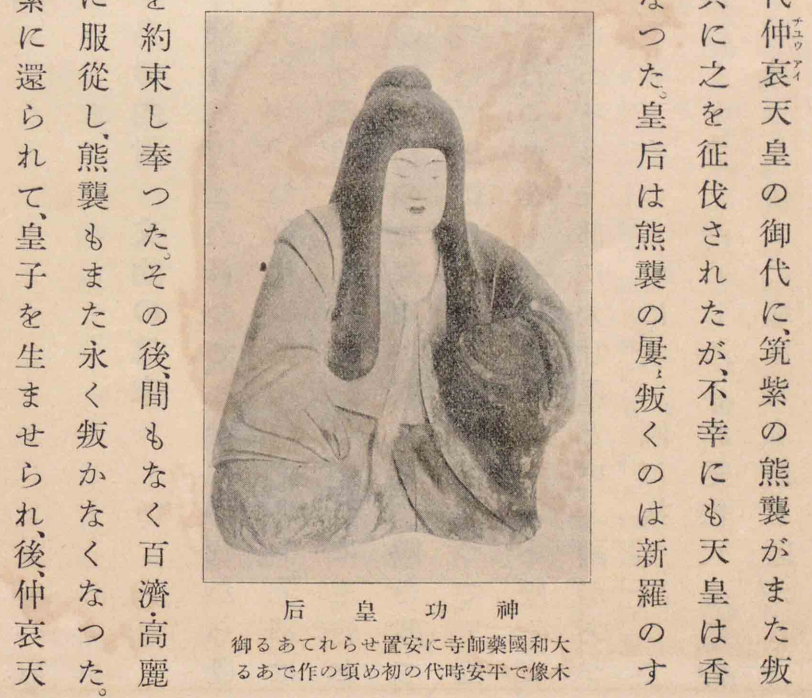 代仲哀天皇の御代に、筑紫の熊襲がまた叛
チユウアイ
共に之を征伐されたが、不幸にも天皇は香
なつた。皇后は熊襲の屢〻叛くのは新羅のす
神功皇后
大和國藥師寺に安置せられてある御
木像で平安時代の初め頃の作である
を約束し奉つた。その後、間もなく百濟・高麗
に服從し、熊襲もまた永く叛かなくなつた。
紫に還られて、皇子を生ませられ、後、仲哀天